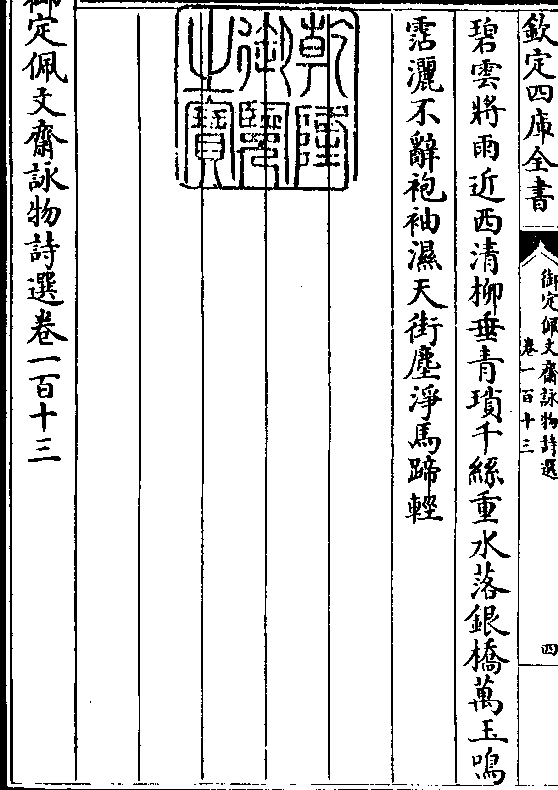 欽定四庫全書
御定佩文齋詠物詩選
卷一百十三
四
碧雲將雨近西清柳垂青瑣千絲重水落銀橋萬玉鳴
霑灑不辭袍袖濕天街塵淨馬蹄輕
乾隆
御覽
之寶
御定佩文齋詠物詩選卷一百十三